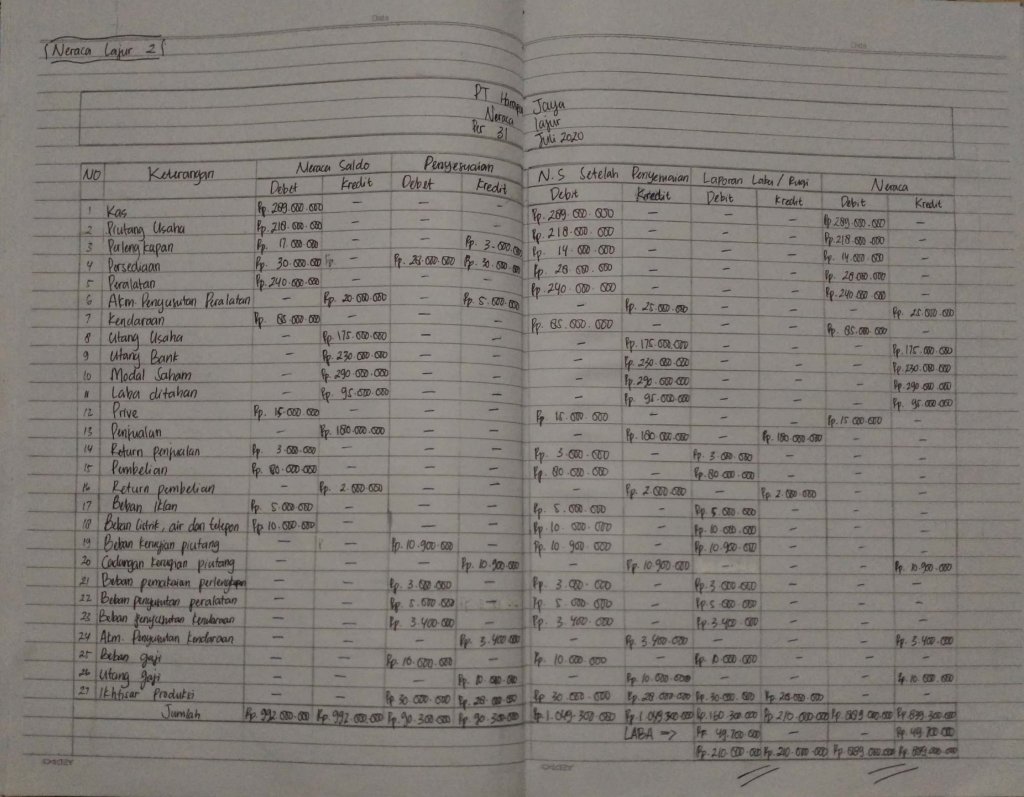 Neraca Lajur 2
PT Harapan Jaya
Neraca lajur
Per 31 Juli 2020
NO Keterangan Neraca Saldo Penyesuaian N.S Setelah Penyesuaian Laporan Laba / Rugi Neraca
Debet Kredit Debet Kredit Debit Kredit Debit Kredit Debit Kredit
1 Kas Rp. 289.000.000 — — — Rp. 289.000.000 — — — Rp. 289.000.000 —
2 Piutang Usaha Rp. 218.000.000 — — — Rp. 218.000.000 — — — Rp. 218.000.000 —
3 Perlengkapan Rp. 17.000.000 — — Rp. 3.000.000 Rp. 14.000.000 — — — Rp. 14.000.000 —
4 Persediaan Rp. 30.000.000 Rp — Rp. 28.000.000 Rp. 30.000.000 Rp. 28.000.000 — — — Rp. 28.000.000 —
5 Peralatan Rp. 240.000.000 — — — Rp. 240.000.000 — — — Rp. 240.000.000 —
6 Akm. Penyusutan Peralatan — Rp. 20.000.000 — Rp. 5.000.000 — Rp. 25.000.000 — — — Rp. 25.000.000
7 Kendaraan Rp. 85.000.000 — — — Rp. 85.000.000 — — — Rp. 85.000.000 —
8 Utang Usaha — Rp. 175.000.000 — — — Rp. 175.000.000 — — — Rp. 175.000.000
9 Utang Bank — Rp. 230.000.000 — — — Rp. 230.000.000 — — — Rp. 230.000.000
10 Modal Saham — Rp. 290.000.000 — — — Rp. 290.000.000 — — — Rp. 290.000.000
11 Laba ditahan — Rp. 95.000.000 — — — Rp. 95.000.000 — — — Rp. 95.000.000
12 Prive Rp. 15.000.000 — — — Rp. 15.000.000 — — — Rp. 15.000.000 —
13 Penjualan — Rp. 180.000.000 — — — Rp. 180.000.000 — Rp. 180.000.000 — —
14 Return penjualan Rp. 3.000.000 — — — Rp. 3.000.000 — Rp. 3.000.000 — — —
15 Pembelian Rp. 80.000.000 — — — Rp. 80.000.000 — Rp. 80.000.000 — — —
16 Return pembelian — Rp. 2.000.000 — — — Rp. 2.000.000 — Rp. 2.000.000 — —
17 Beban Iklan Rp. 5.000.000 — — — Rp. 5.000.000 — Rp. 5.000.000 — — —
18 Beban listrik, air dan telepon Rp. 10.000.000 — — — Rp. 10.000.000 — Rp. 10.000.000 — — —
19 Beban kerugian piutang — — Rp. 10.900.000 — Rp. 10.900.000 — Rp. 10.900.000 — — —
20 Cadangan kerugian piutang — — — Rp. 10.900.000 — Rp. 10.900.000 — — — Rp. 10.900.000
21 Beban pemakaian perlengkapan — — Rp. 3.000.000 — Rp. 3.000.000 — Rp. 3.000.000 — — —
22 Beban penyusutan peralatan — — Rp. 5.000.000 — Rp. 5.000.000 — Rp. 5.000.000 — — —
23 Beban penyusutan kendaraan — — Rp. 3.400.000 — Rp. 3.400.000 — Rp. 3.400.000 — — —
24 Akm. Penyusutan kendaraan — — — Rp. 3.400.000 — Rp. 3.400.000 — — — Rp. 3.400.000
25 Beban gaji — — Rp. 10.000.000 — Rp. 10.000.000 — Rp. 10.000.000 — — —
26 Utang gaji — — — Rp. 10.000.000 — Rp. 10.000.000 — — — Rp. 10.000.000
27 Ikhtisar Produksi — — Rp 30.000.000 Rp. 28.000.000 Rp 30.000.000 Rp. 28.000.000 Rp. 30.000.000 Rp. 28.000.000 — —
Jumlah Rp. 992.000.000 Rp. 992.000.000 Rp. 90.300.000 Rp. 90.300.000 Rp. 1.049.300.000 Rp. 1.049.300.000 Rp. 160.300.000 Rp. 210.000.000 Rp. 889.000.000 Rp. 839.300.000
LABA => Rp. 49.700.000 — — Rp. 49.700.000
Rp. 210.000.000 Rp. 210.000.000 Rp. 889.000.000 Rp. 889.000.000